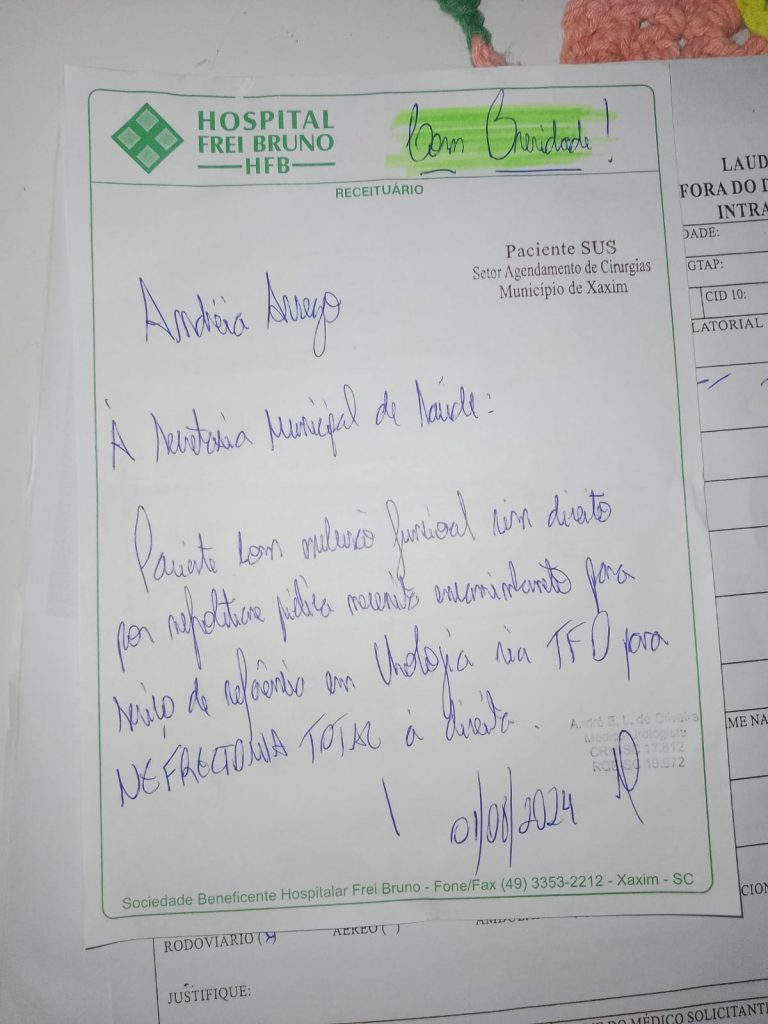 HOSPITAL
FREI BRUNO
HFB
Com Breridade!
RECEITUÁRIO
Paciente SUS
Setor Agendamento de Cirurgias
Município de Xaxim
Andréia Arrego
À Secretaria Municipal de Saúde:
Paciente com exclusão funcional rim direito
por nefrolitiase piélica necessita encaminhamento para
serviço de referência em Urologia via TFD para
NEFRECTOMIA TOTAL à direita.
André E. L. de Oliveira
Médico Urologista
CRM-SC 17.812
RQE-SC 19.972
01/08/2024
Sociedade Beneficente Hospitalar Frei Bruno - Fone/Fax (49) 3353-2212 - Xaxim - SC
LAUD
FORA DO D
INTRA
DADE:
GTAP:
CID 10:
LATORIAL
ME NA
CION
RODOVIÁRIO (X) AÉREO ( )
JUSTIFIQUE:
DO MÉDICO SOLICITANTE